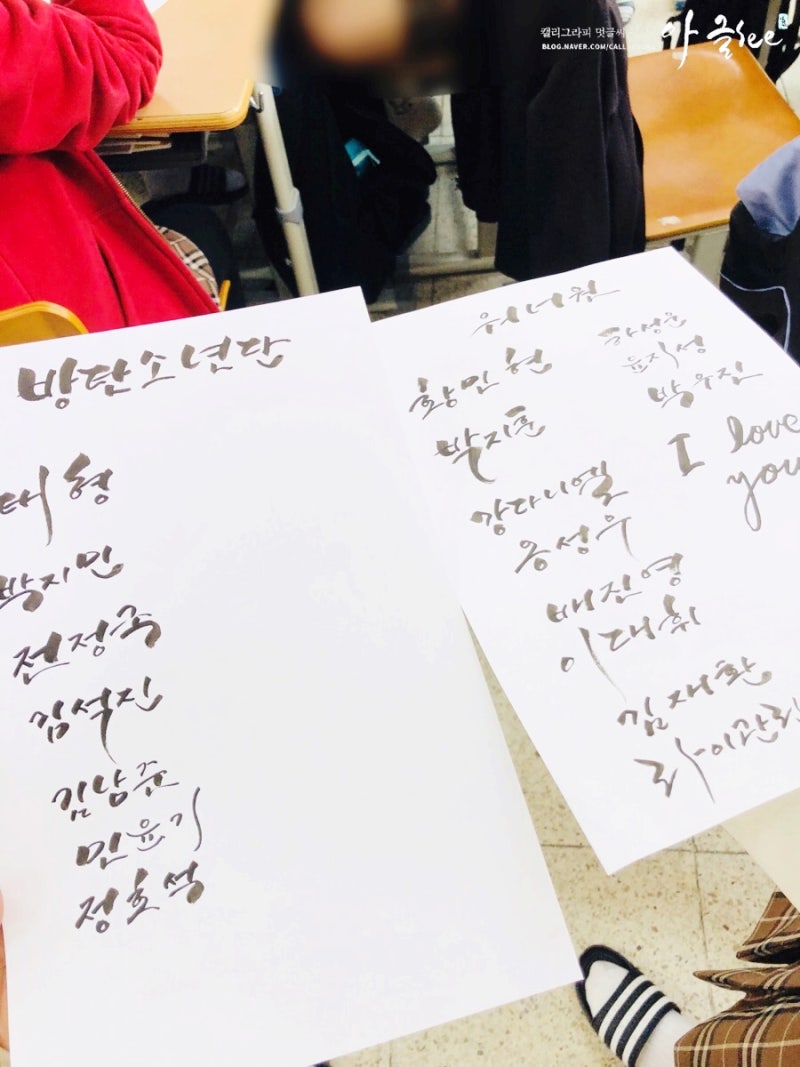 캘리그라피 멋글씨
BLOG.NAVER.COM/CALL
글see
방탄소년단
태형
박지민
전정국
김석진
김남준
민윤기
정호석
워너원
황민현
박지훈
강다니엘
옹성우
배진영
이대휘
김재환
라이관린
하성운
윤지성
박우진
I love
you